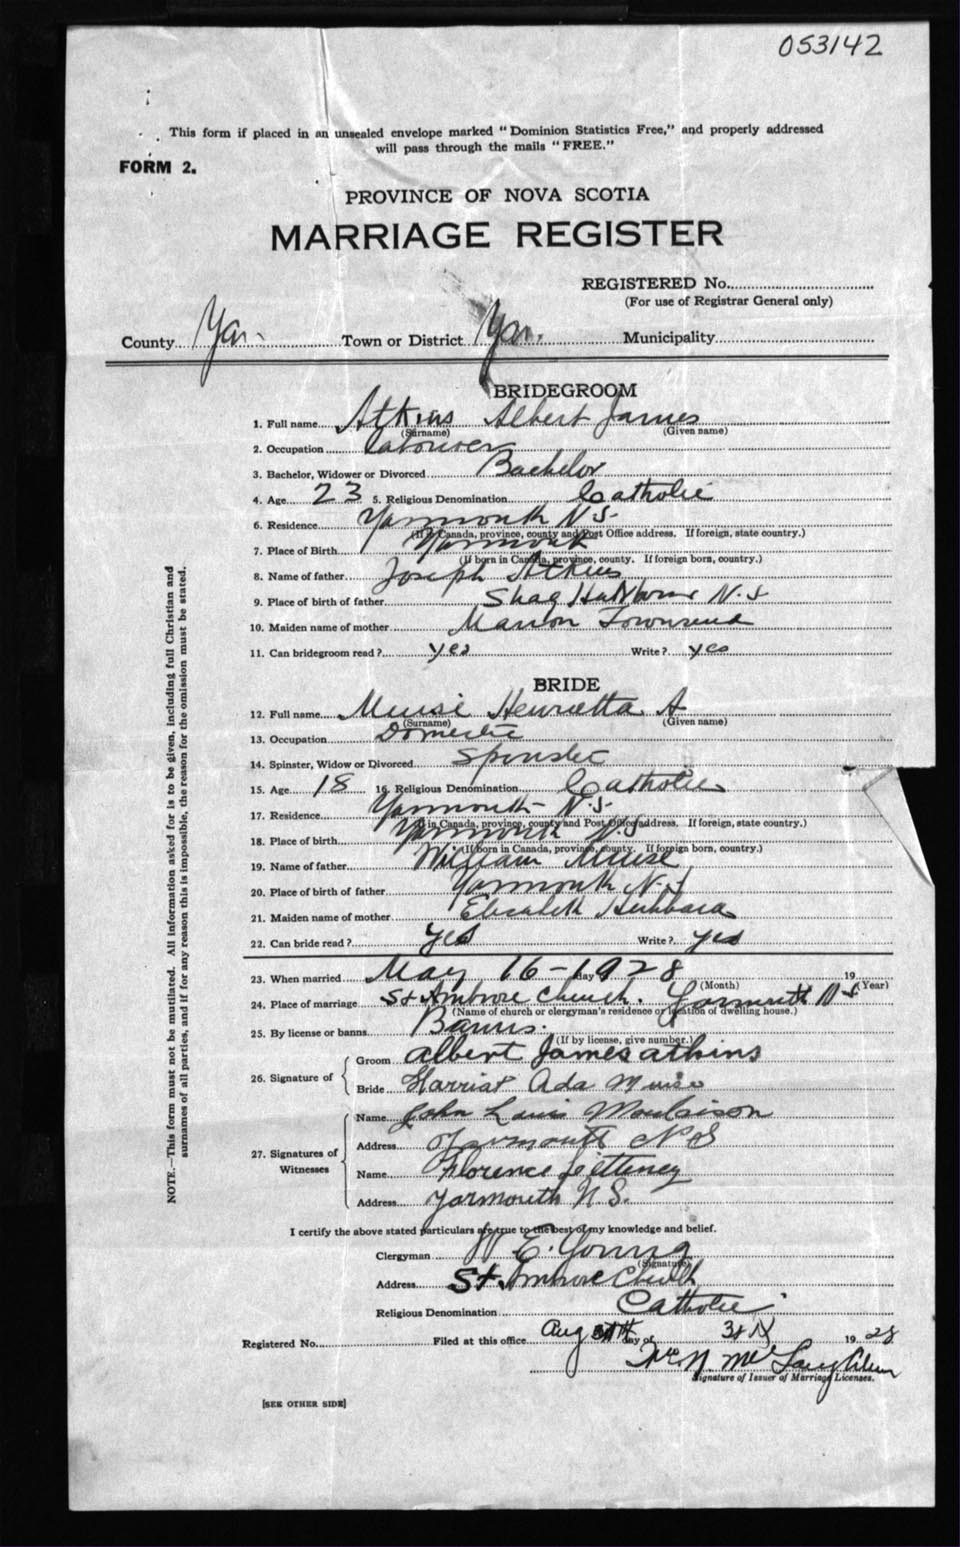 053142
This form if placed in an unsealed envelope marked "Dominion Statistics Free," and properly addressed
will pass through the mails "FREE."
FORM 2.
PROVINCE OF NOVA SCOTIA
MARRIAGE REGISTER
REGISTERED No.
(For use of Registrar General only)
County Yar. Town or District Yar. Municipality
BRIDEGROOM
1. Full name Atkins Albert James
(Surname) (Given name)
2. Occupation Labourer
3. Bachelor, Widower or Divorced Bachelor
4. Age 23 5. Religious Denomination Catholic
6. Residence Yarmouth N S.
(If in Canada, province, county and Post Office address. If foreign, state country.)
7. Place of Birth Yarmouth
(If born in Canada, province, county. If foreign born, country.)
8. Name of father Joseph Atkins
9. Place of birth of father Shag N.S
10. Maiden name of mother Marion Townsend
11. Can bridegroom read? yes Write? yes
BRIDE
12. Full name Muise Henrietta A
(Surname) (Given name)
13. Occupation Domestic
14. Spinster, Widow or Divorced Spinster
15. Age 18 16. Religious Denomination Catholic
17. Residence Yarmouth N.S.
(If in Canada, province, county and Post Office address. If foreign, state country.)
18. Place of birth Yarmouth N.S
(If born in Canada, province, county. If foreign born, country.)
19. Name of father William Muise
20. Place of birth of father Yarmouth N.S
21. Maiden name of mother Elizabeth
22. Can bride read? yes Write? yes
23. When married May 16-1928 day 19
(Month) (Year)
24. Place of marriage St Ambrose Church. Yarmouth N S.
(Name of church or clergyman's residence or location of dwelling house.)
25. By license or banns Banns.
(If by license, give number.)
26. Signature of
Groom albert James atkins
Bride Harriat Ada Muise
27. Signatures of Witnesses
Name John Louis
Address Yarmouth N S
Name Florence
Address Yarmouth N.S.
I certify the above stated particulars are true to the best of my knowledge and belief.
Clergyman E. Young
(Signature)
Address St. Ambrose Church
Religious Denomination Catholic
Registered No. Filed at this office Aug day of 1928
McLaughlin
Signature of Issuer of Marriage Licenses.
[SEE OTHER SIDE]
NOTE.—This form must not be mutilated. All information asked for is to be given, including full Christian and
surnames of all parties, and if for any reason this is impossible, the reason for the omission must be stated.